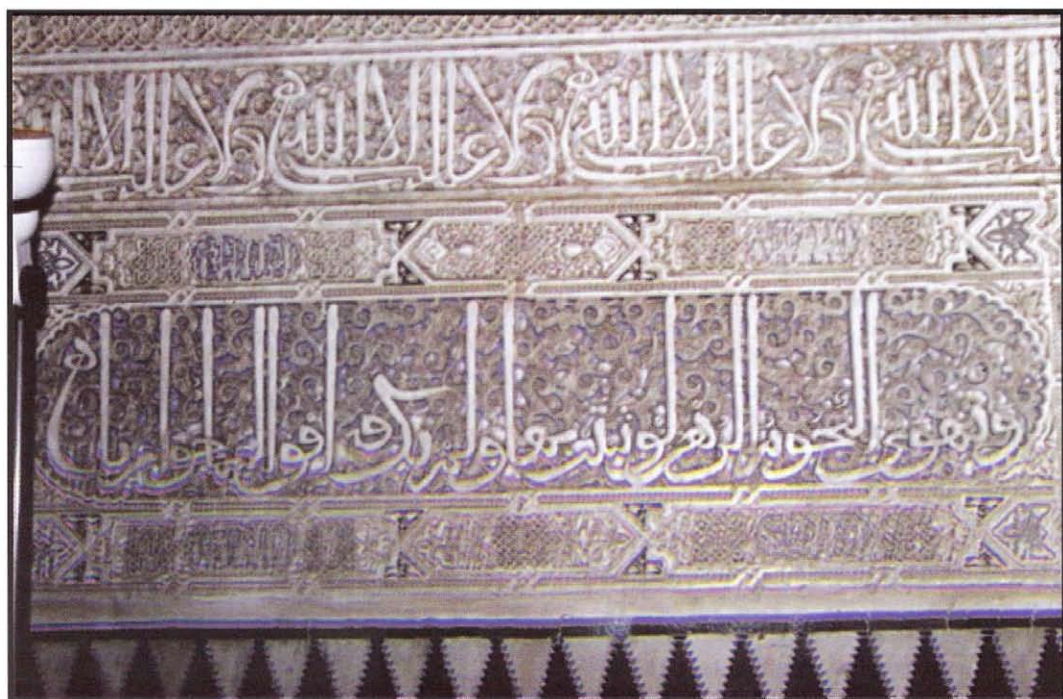 الا الله ولا غالب الا الله ولا غالب الا الله ولا غالب الا
وتهوى النجوم الزهر لو ثبتت بها ولم تك في افق السماء جواريا